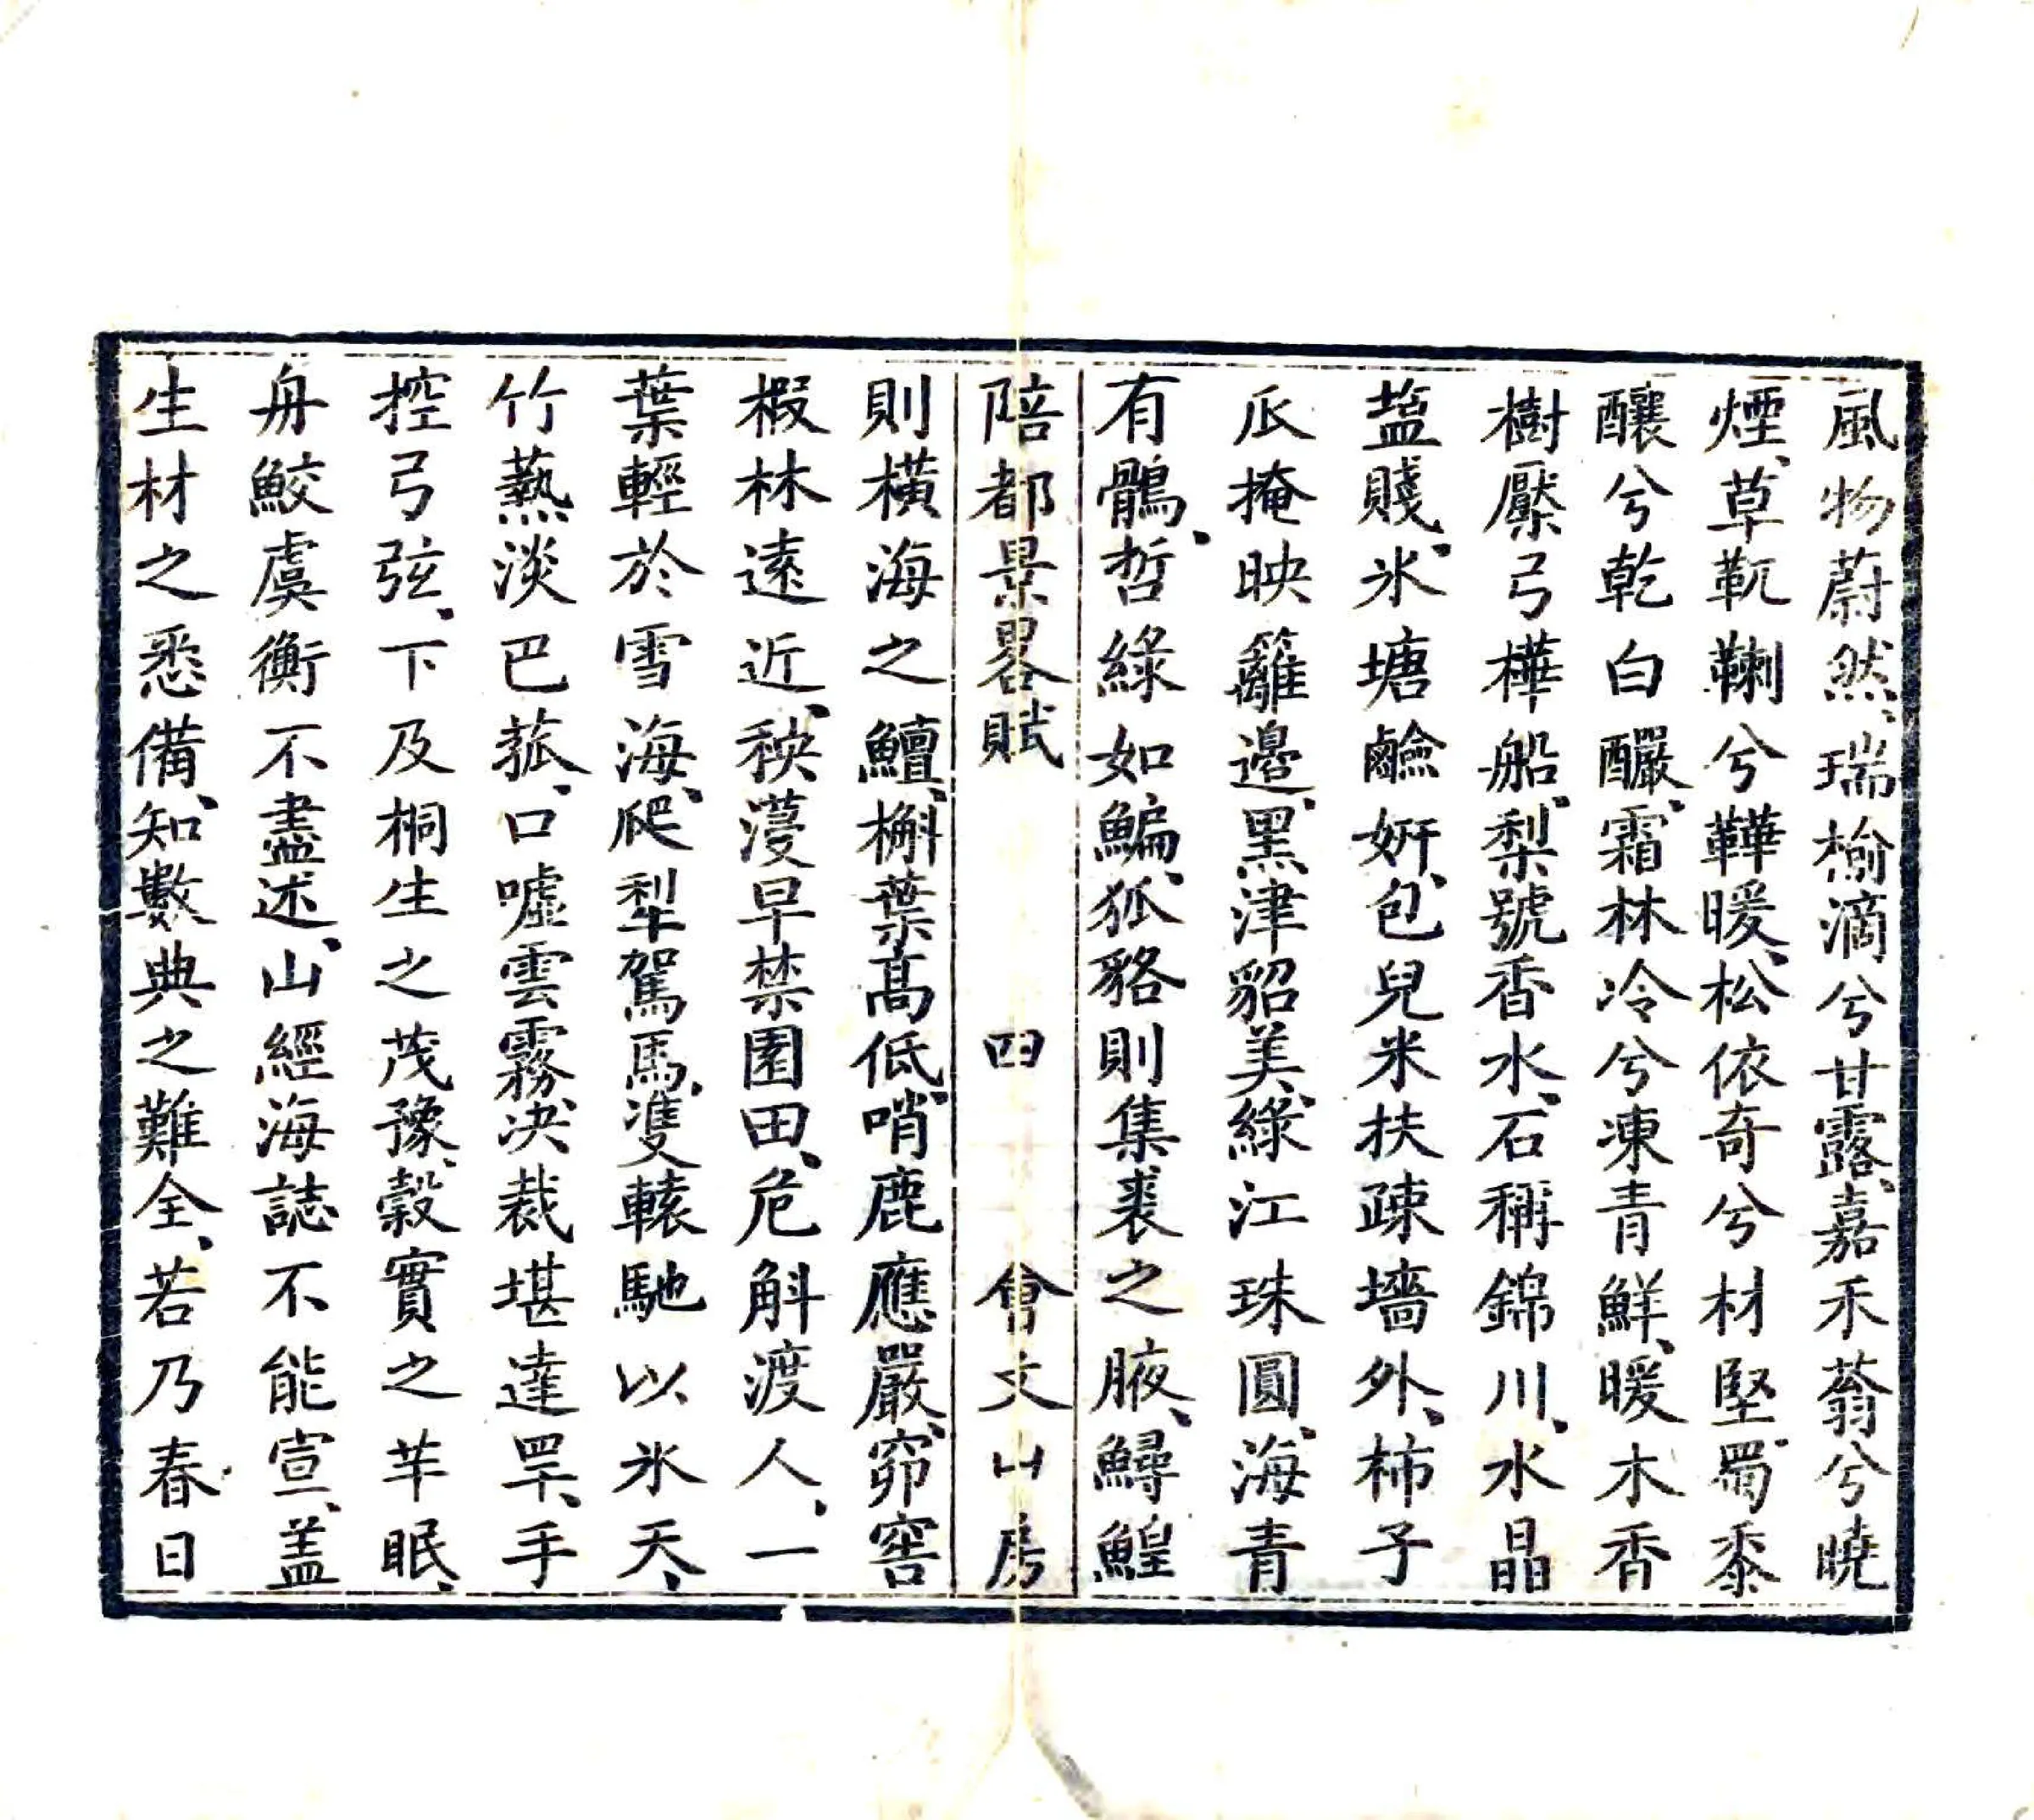 風物蔚然、瑞榆滴兮甘露、嘉禾蓊兮曉
煙、草靰鞡兮鞾暖、松依奇兮材堅、蜀黍
釀兮乾白釅、霜林冷兮凍青鮮、暖木香
樹壓弓樺船、梨號香水、石稱錦川、水晶
鹽賤、氷塘鹼妍、包兒米扶疎墻外、柿子
瓜掩映籬邉、黑津貂美、綠江珠圓、海青
有鶻、哲綠如鯿、狐貉則集裘之腋、鱘鰉
陪都景畧賦 四 會文山房
則橫海之鱣、槲葉高低、哨鹿應嚴、窌窖
椴林遠近、秧薓早禁園田、危斛渡人、一
葉輕於雪海、爬犁駕馬、雙轅馳以氷天、
竹爇淡巴菰、口噓雲霧、決裁堪達罕、手
控弓弦、下及桐生之茂豫、穀實之芉眠、
舟鮫虞衡不盡述、山經海誌不能宣、盖
生材之悉備、知數典之難全、若乃春日